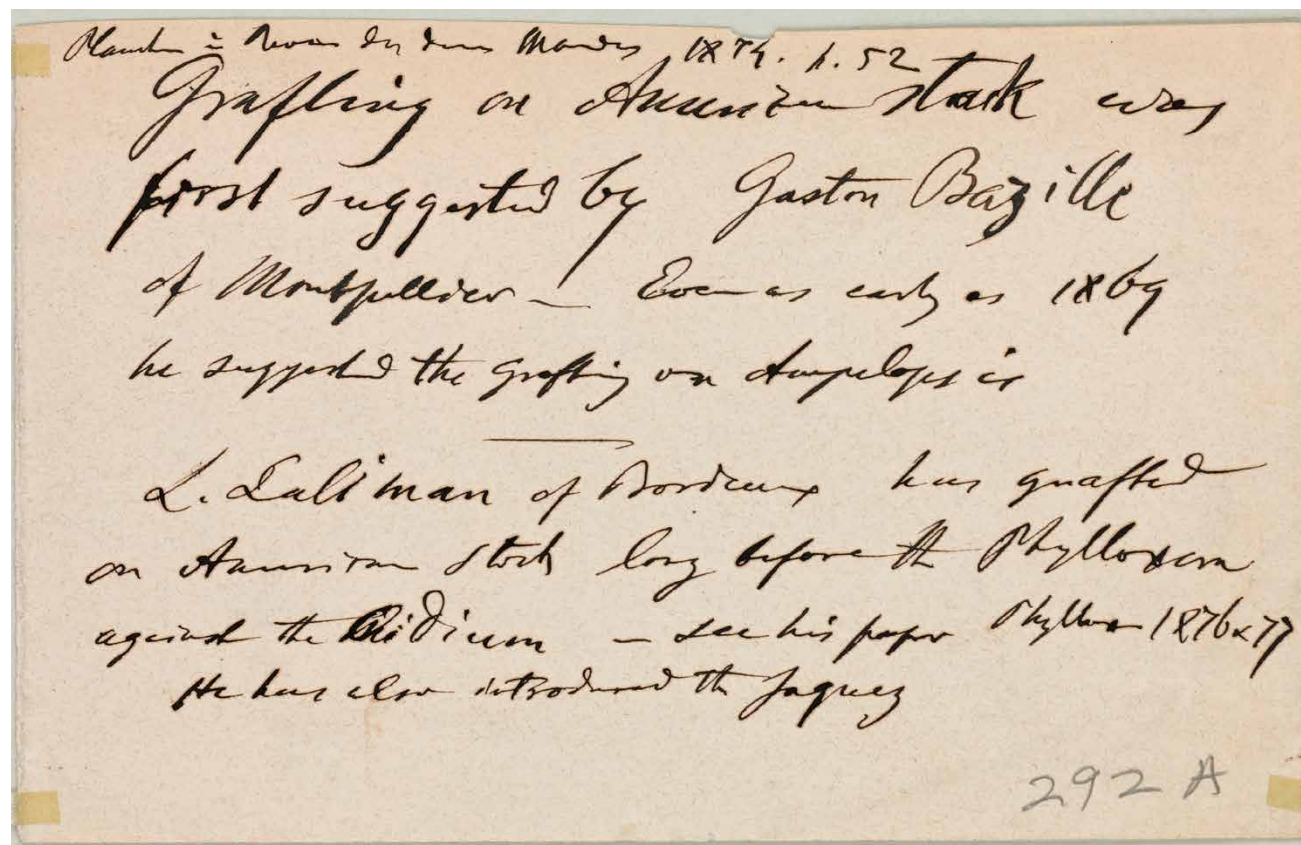 Planchon in Revue des deux Mondes 1874. p. 52
Grafting on American stock was
first suggested by Gaston Bazille
of Montpellier – Even as early as 1869
he suggested the grafting on Ampelopsis
L. Laliman of Bordeaux has grafted
on American Stock long before the Phylloxera
against the Oidium – see his paper Phyllox 1876 & 77
He has also introduced the Jaquez
292 A